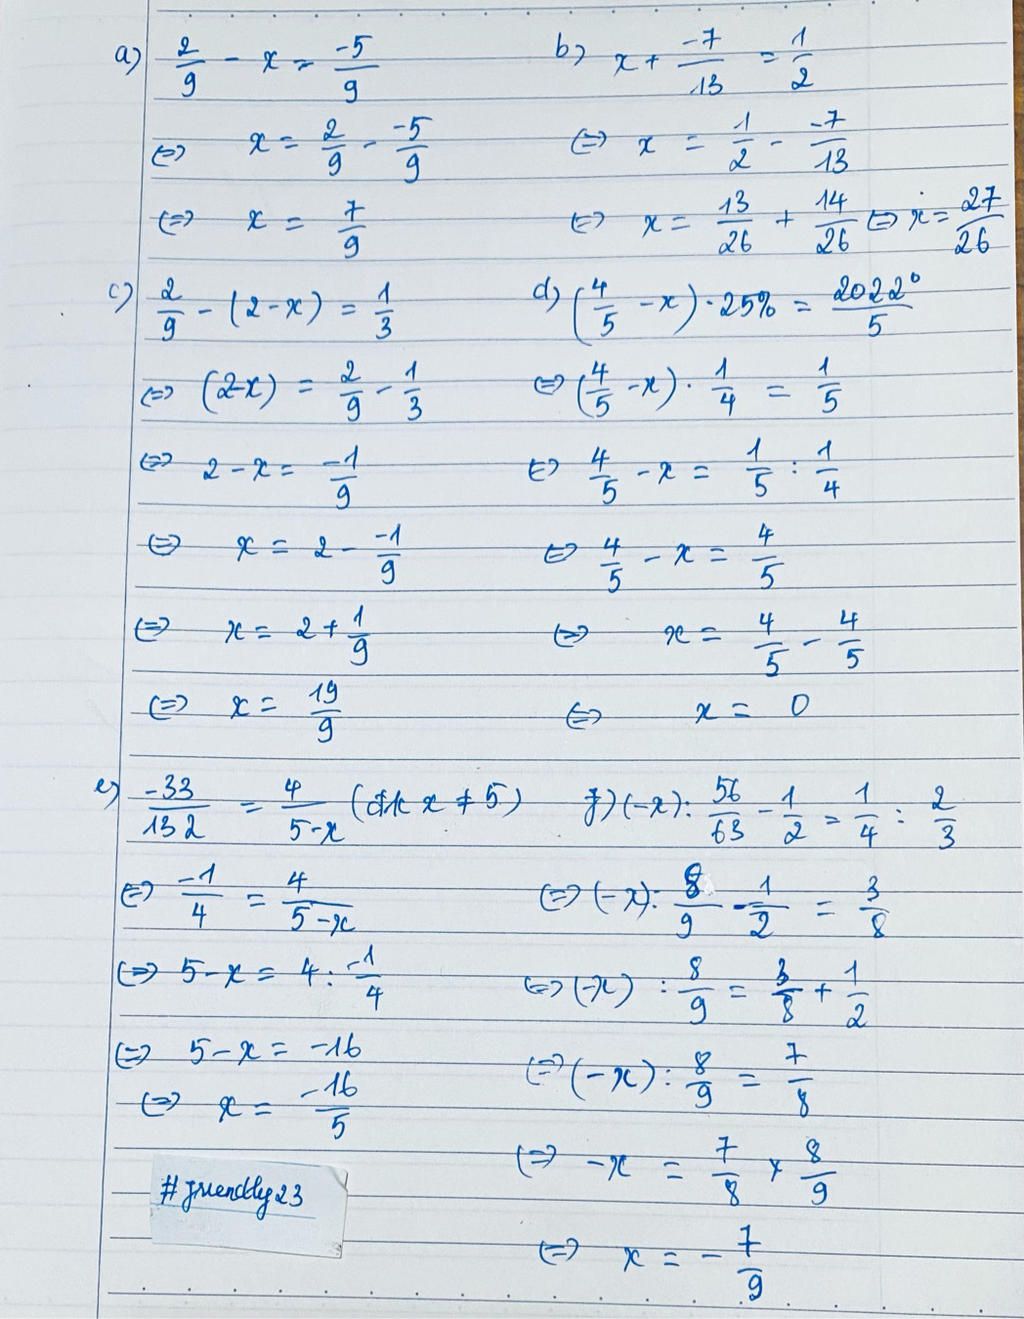 a) 2/9 - x = -5/9
⇔ x = 2/9 - -5/9
⇔ x = 7/9
b) x + -7/13 = 1/2
⇔ x = 1/2 - -7/13
⇔ x = 13/26 + 14/26 ⇔ x = 27/26
c) 2/9 - (2-x) = 1/3
⇔ (2-x) = 2/9 - 1/3
⇔ 2-x = -1/9
⇔ x = 2 - -1/9
⇔ x = 2 + 1/9
⇔ x = 19/9
d) (4/5 - x) · 25% = 2022⁰/5
⇔ (4/5 - x) · 1/4 = 1/5
⇔ 4/5 - x = 1/5 : 1/4
⇔ 4/5 - x = 4/5
⇔ x = 4/5 - 4/5
⇔ x = 0
e) -33/132 = 4/(5-x) (đk x ≠ 5)
⇔ -1/4 = 4/(5-x)
⇔ 5-x = 4 : -1/4
⇔ 5-x = -16
⇔ x = -16/5
f) (-x) : 56/63 - 1/2 = 1/4 : 2/3
⇔ (-x) : 8/9 - 1/2 = 3/8
⇔ (-x) : 8/9 = 3/8 + 1/2
⇔ (-x) : 8/9 = 7/8
⇔ -x = 7/8 × 8/9
⇔ x = - 7/9
#friendly23